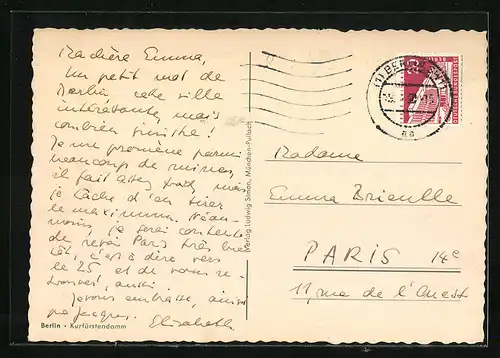 Ma chère Emma,
Un petit mot de
Berlin cette ville
intéressante, mais
combien sinistre!
Je me promène parmi
beaucoup de ruines,
il fait assez froid, mais
je tâche d'en tirer
le maximum. Néan-
moins, je serai contente
de revoir Paris très bien-
tôt, c'est à dire vers
le 25 et de vous re-
trouver, aussi.
Je vous embrasse, ainsi
que Jacques.
Elisabeth
Berlin · Kurfürstendamm
Verlag Ludwig Simon, München-Pullach
BERLIN
Madame
Emma
PARIS 14e
11, rue de l'Ouest